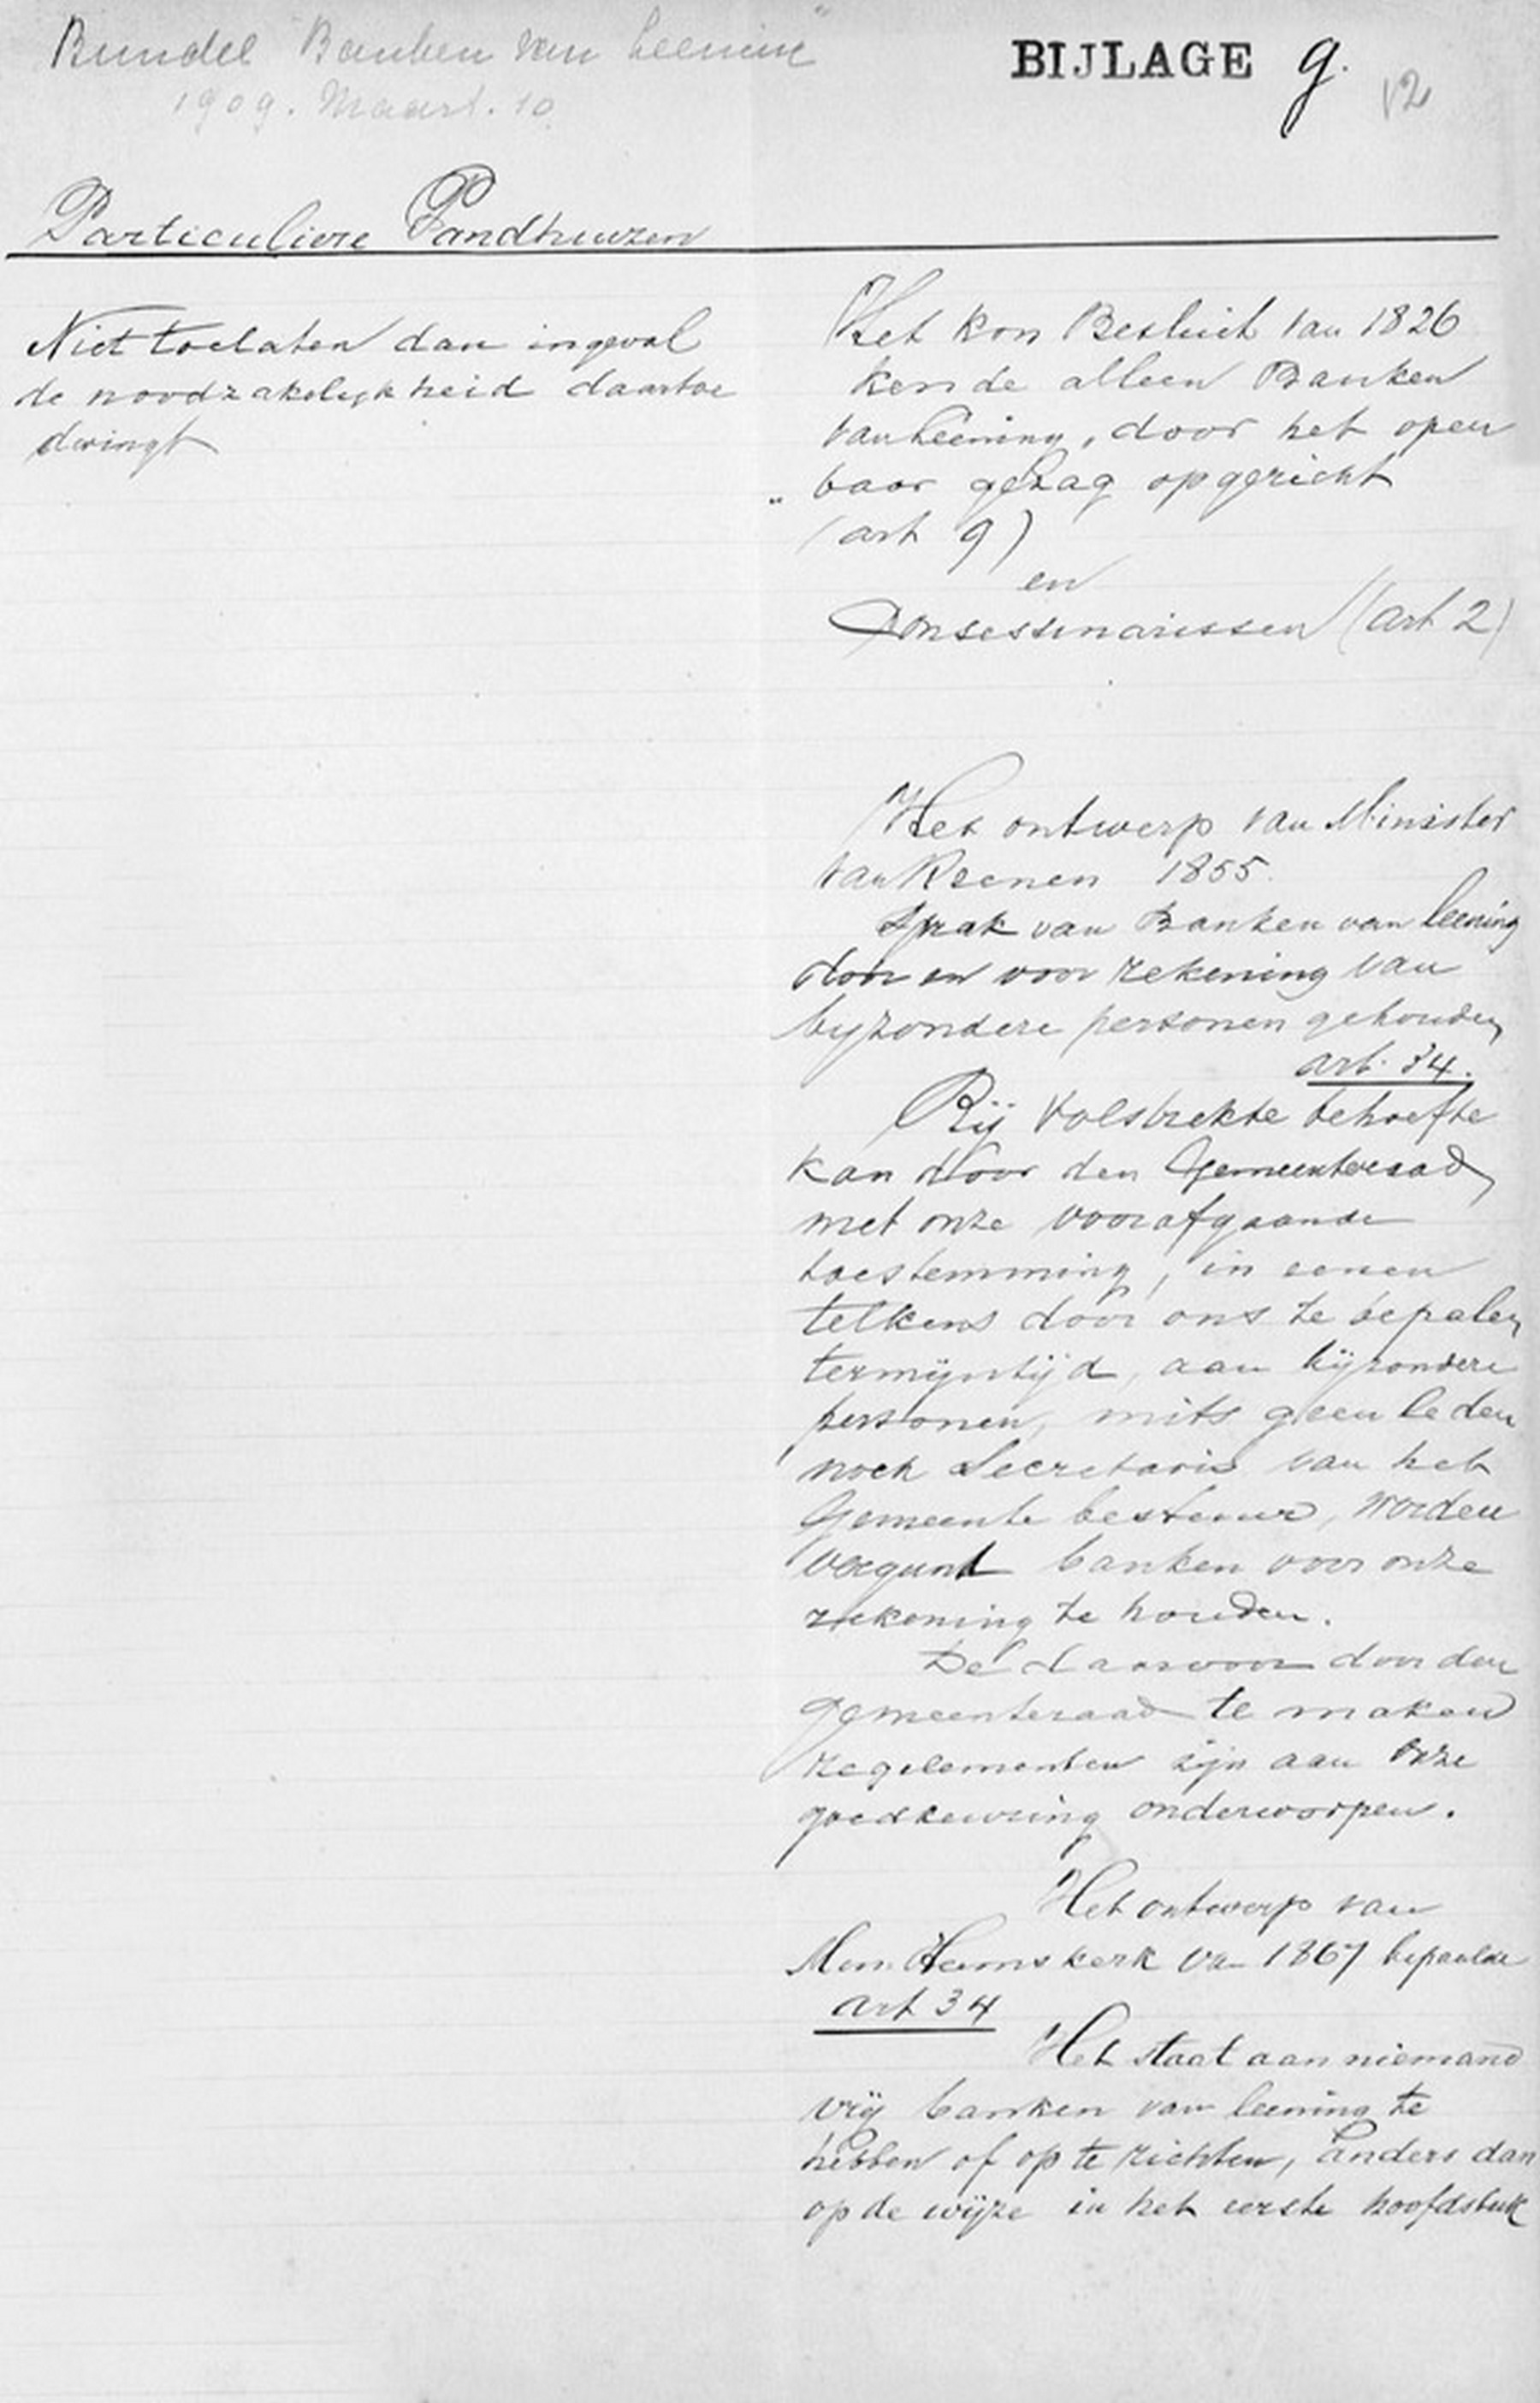 Bundel "Banken van Leening"
1909. Maart. 10
BIJLAGE g.
12
Particuliere Pandhuizen
Niet toelaten dan ingeval
de noodzakelijkheid daartoe
dwingt
Het kon Besluit van 1826
kende alleen Banken
van leening, door het open
" baar gezag opgericht
(art 9)
en
Consessinarissen (art 2)
Het ontwerp van Minister
van Reenen 1855.
sprak van Banken van leening
door en voor rekening van
byzondere personen gehouden
art. 34.
Bij volstrekte behoefte
kan door den Gemeenteraad
met onze voorafgaande
toestemming, in eenen
telkens door ons te bepalen
termijntijd, aan bijzondere
personen, mits geen leden
noch Secretaris van het
Gemeente bestuur, worden
vergund banken voor onze
rekening te houden.
De daarvoor door den
gemeenteraad te maken
regelementen zijn aan Onze
goedkeuring onderworpen.
Het ontwerp van
Min. Heemskerk van 1867 bepaalde
art 34
Het staat aan niemand
vrij banken van leening te
hebben of op te richten, anders dan
op de wijze in het eerste hoofdstuk